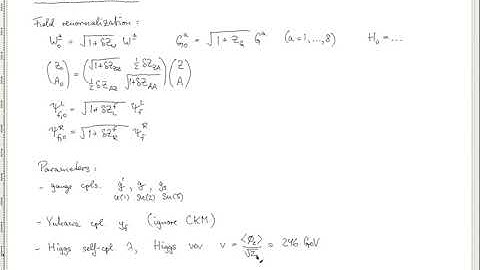 Field renormalization:
W₀^± = √(1+δZ_W) W^±   G₀^a = √(1+Z_g) G^a (a=1,...,8)   H₀ = ...
(Z₀ A₀) = (√(1+δZ_ZZ) ½δZ_ZA ½δZ_AZ √(1+δZ_AA)) (Z A)
ψ_f,0^L = √(1+δZ_L^f) ψ_f^L
ψ_f,0^R = √(1+δZ_R^f) ψ_f^R
Parameters:
- gauge cpls. g', g, g_s
U(1) SU(2) SU(3)
- Yukawa cpl y_f (ignore CKM)
- Higgs self-cpl λ, Higgs vev v = <ϕ₂>/√2 = 246 GeV